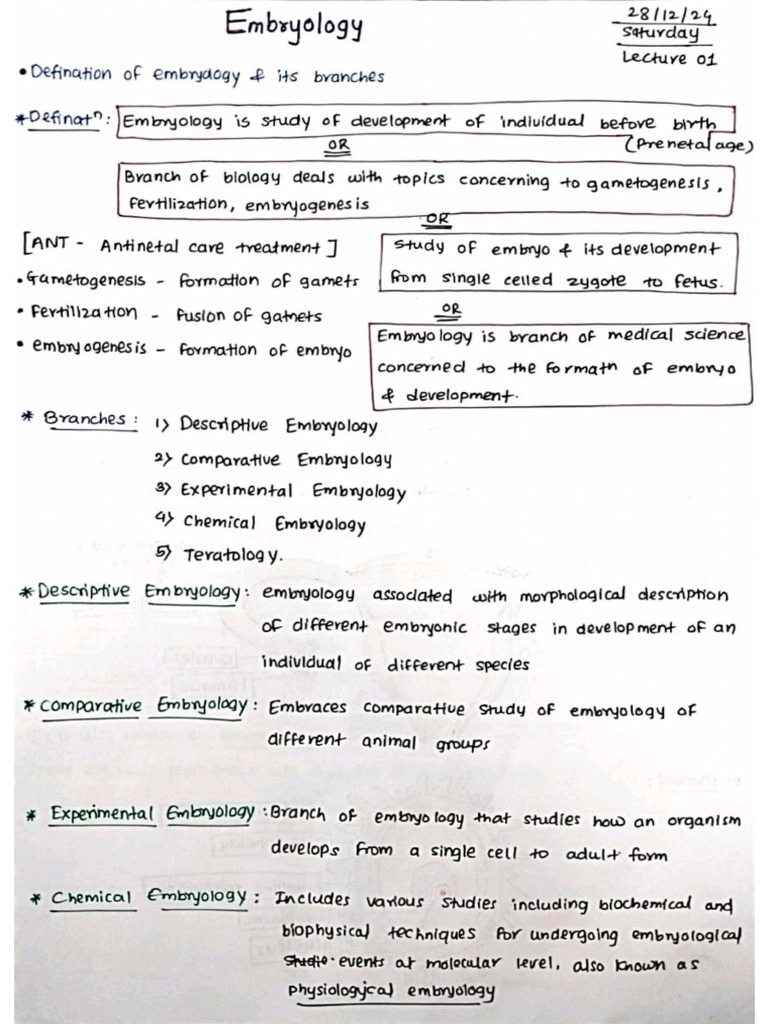 Embryology
28/12/24
Saturday
Lecture 01
• Defination of embryology & its branches
* Definatⁿ: Embryology is study of development of individual before birth
(Prenetal age)
OR
Branch of biology deals with topics concerning to gametogenesis,
fertilization, embryogenesis
OR
[ANT - Antinetal care treatment]
Study of embryo & its development
from single celled zygote to fetus.
• Gametogenesis - formation of gamets
• Fertilization - fusion of gamets
• embryogenesis - formation of embryo
OR
Embryology is branch of medical science
concerned to the formatⁿ of embryo
& development.
* Branches: 1) Descriptive Embryology
2) Comparative Embryology
3) Experimental Embryology
4) Chemical Embryology
5) Teratology.
* Descriptive Embryology: embryology associated with morphological description
of different embryonic stages in development of an
individual of different species
* Comparative Embryology: Embraces comparative study of embryology of
different animal groups
* Experimental Embryology: Branch of embryology that studies how an organism
develops from a single cell to adult form
* Chemical Embryology: Includes various studies including biochemical and
biophysical techniques for undergoing embryological
Studie. events at molecular level, also known as
physiological embryology